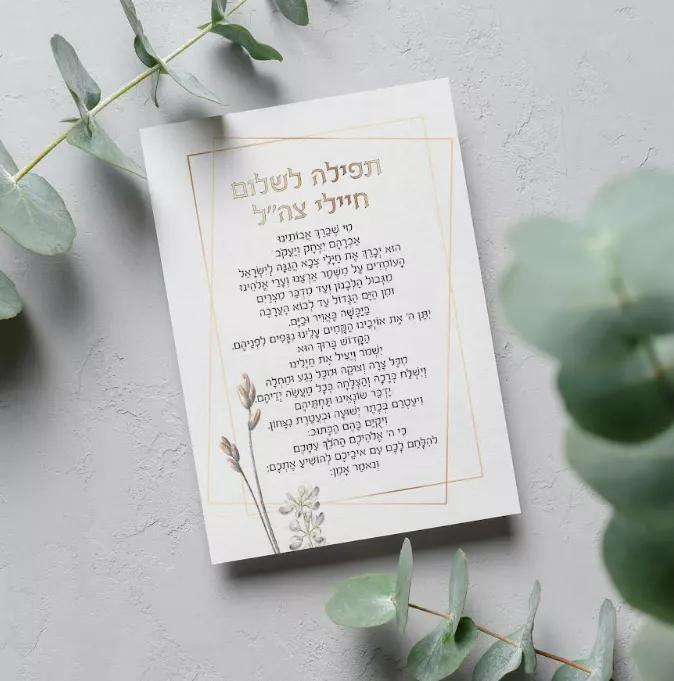 תפילה לשלום
חיילי צה"ל
מִי שֶׁבֵּרַךְ אֲבוֹתֵינוּ
אַבְרָהָם יִצְחָק וְיַעֲקֹב
הוּא יְבָרֵךְ אֶת חַיָּלֵי צְבָא הֲגַנָּה לְיִשְׂרָאֵל
הָעוֹמְדִים עַל מִשְׁמַר אַרְצֵנוּ וְעָרֵי אֱלֹהֵינוּ
מִגְּבוּל הַלְּבָנוֹן וְעַד מִדְבַּר מִצְרַיִם
וּמִן הַיָּם הַגָּדוֹל עַד לְבוֹא הָעֲרָבָה
בַּיַּבָּשָׁה בָּאֲוִיר וּבַיָּם.
יִתֵּן ה' אֶת אוֹיְבֵינוּ הַקָּמִים עָלֵינוּ נִגָּפִים לִפְנֵיהֶם.
הַקָּדוֹשׁ בָּרוּךְ הוּא
יִשְׁמֹר וְיַצִּיל אֶת חַיָּלֵינוּ
מִכָּל צָרָה וְצוּקָה וּמִכָּל נֶגַע וּמַחֲלָה
וְיִשְׁלַח בְּרָכָה וְהַצְלָחָה בְּכָל מַעֲשֵׂה יְדֵיהֶם.
יַדְבֵּר שׂוֹנְאֵינוּ תַּחְתֵּיהֶם
וִיעַטְּרֵם בְּכֶתֶר יְשׁוּעָה וּבַעֲטֶרֶת נִצָּחוֹן.
וִיקֻיַּם בָּהֶם הַכָּתוּב:
כִּי ה' אֱלֹהֵיכֶם הַהֹלֵךְ עִמָּכֶם
לְהִלָּחֵם לָכֶם עִם אֹיְבֵיכֶם לְהוֹשִׁיעַ אֶתְכֶם:
וְנֹאמַר אָמֵן: